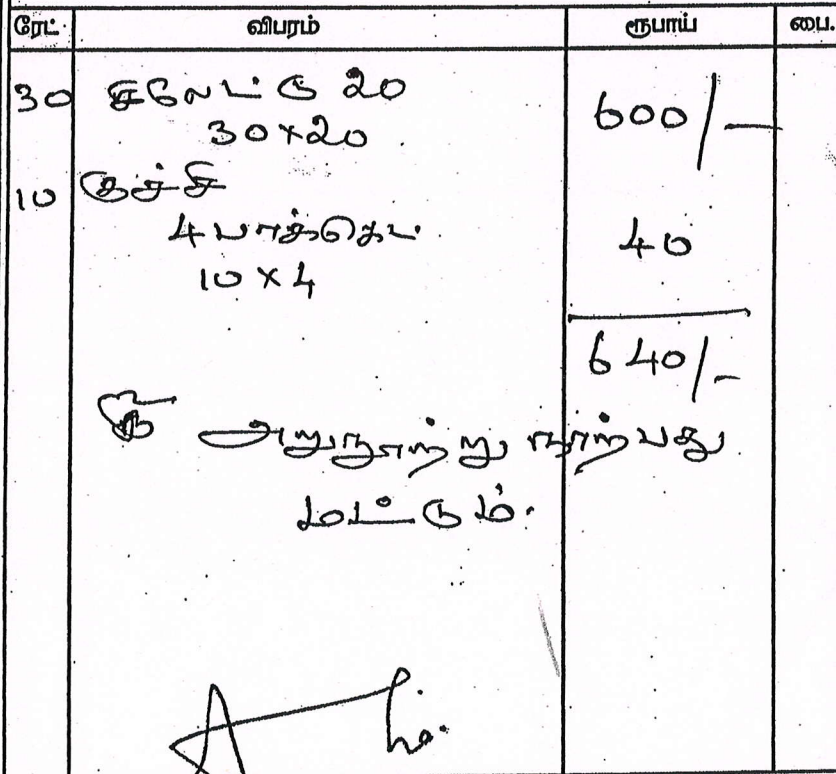 ரேட் விபரம் ரூபாய் பை.
30 சிலேட்டு 20 600/-
30x20
10 குச்சி
4 பாக்கெட் 40
10 x 4
640/-
ரூ அறுநூற்று நாற்பது
மட்டும்.